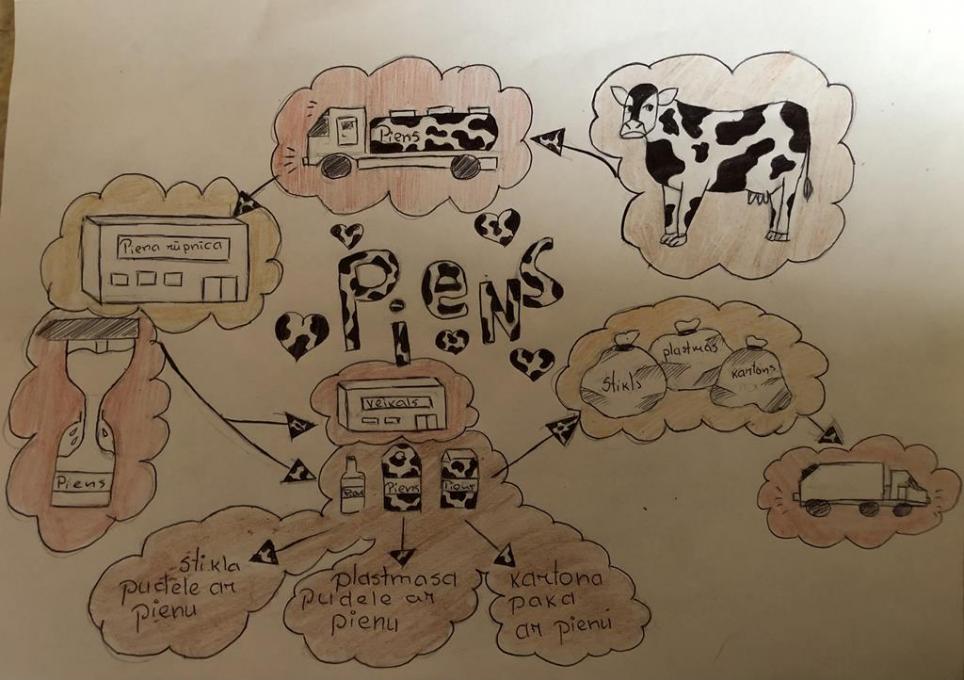 Piens
Piena rūpnīca
Piens
Piens
veikals
stikls
plastmas
kartons
Piens
Piens
Piens
stikla
pudele ar
pienu
plastmasa
pudele ar
pienu
kartona
paka
ar pienu